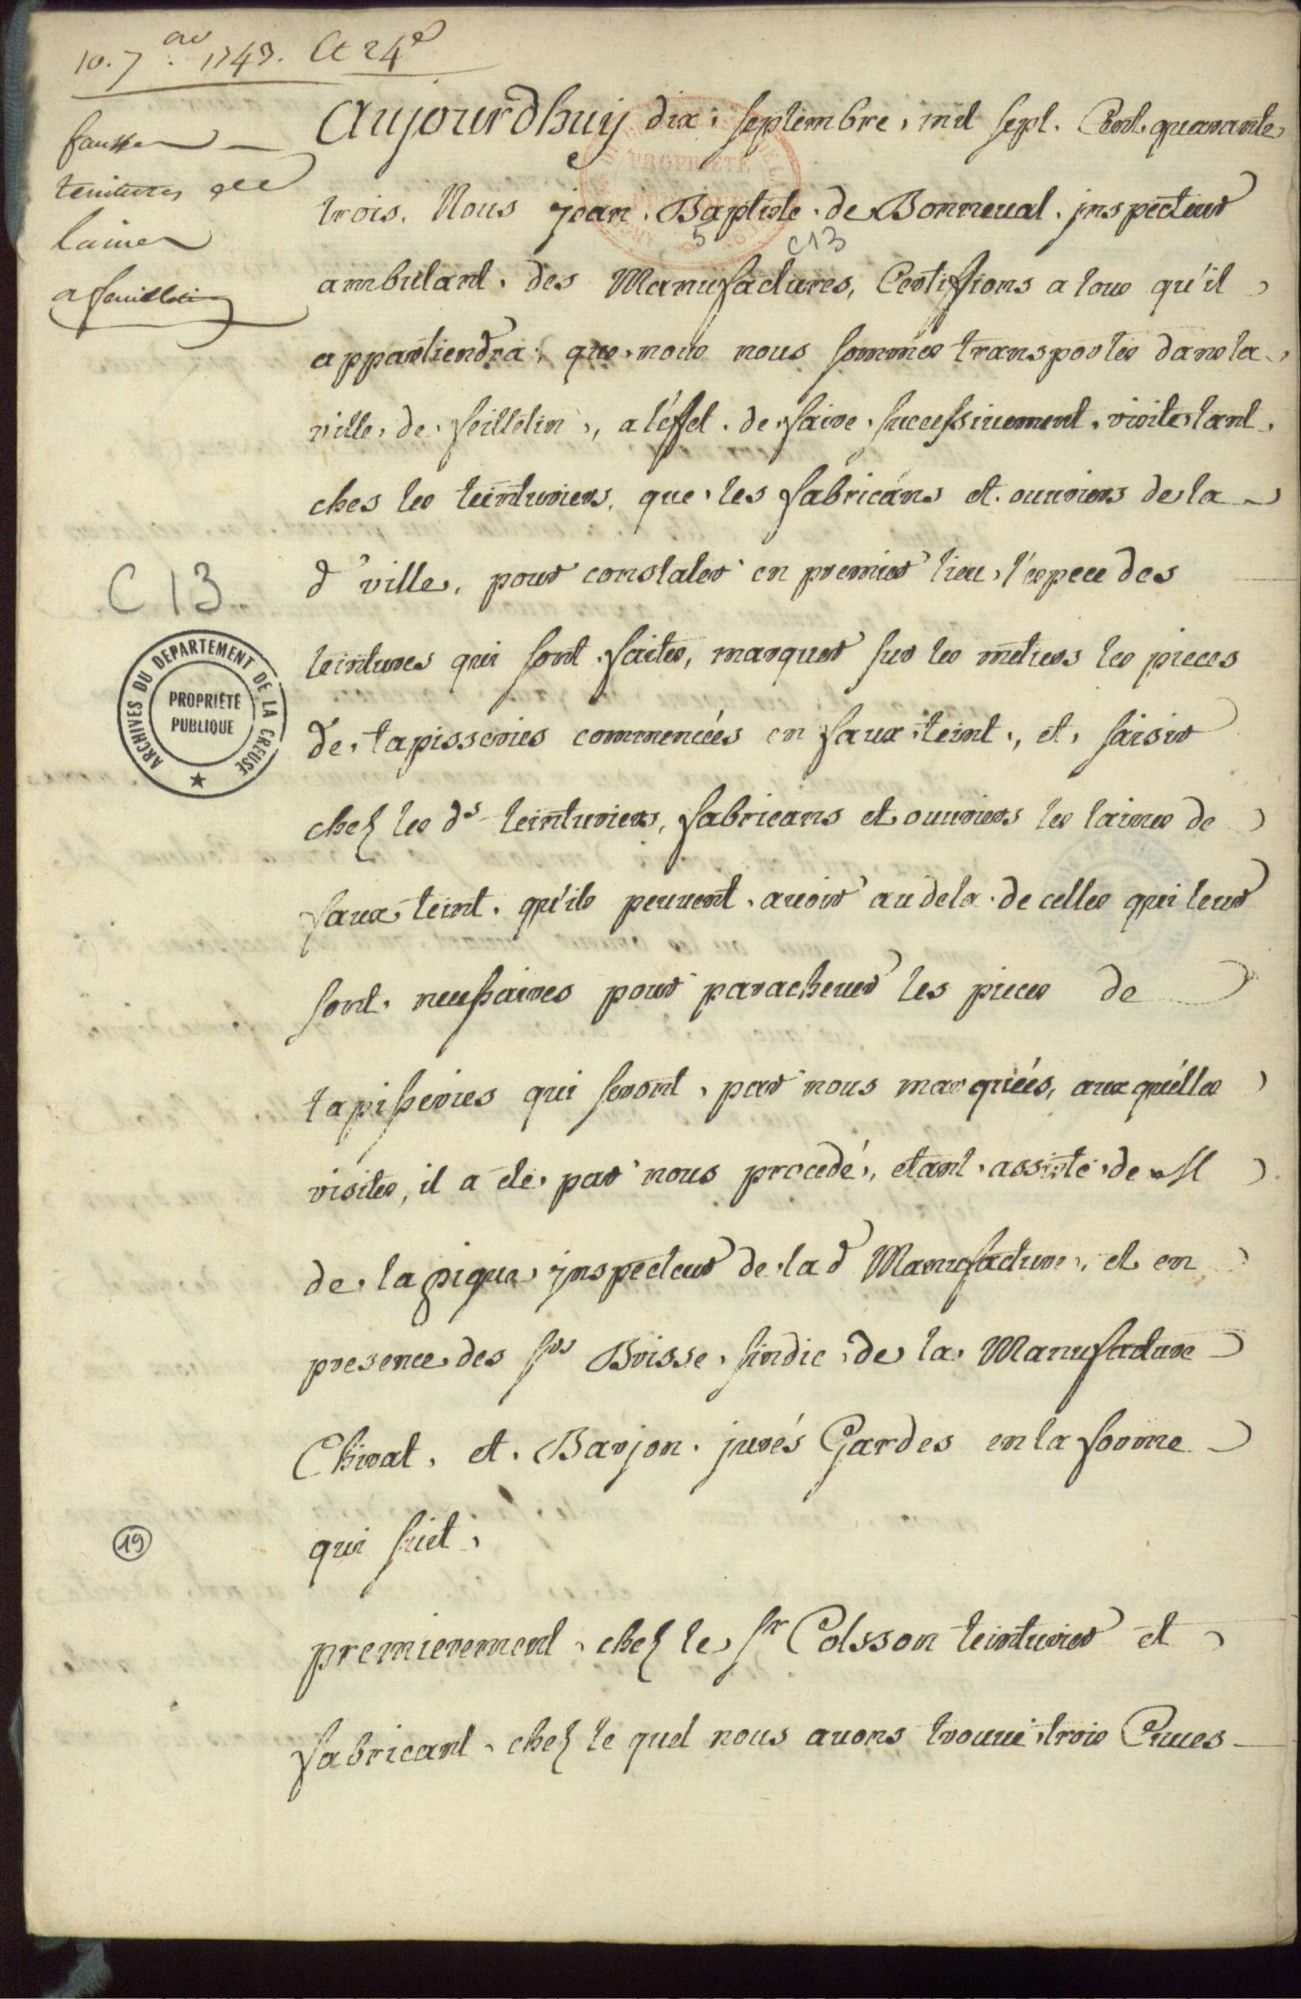 10. 7bre 1743. Et 24e
fausses
teintures de
laines
a feuilletin
Aujourd'huy dix septembre, mil sept. Cent quarante
trois. Nous jean. Baptiste. de Bonneval. jnspecteur
5
C13
ambulant. des Manufactures, Certiffions a tous qu'il
appartiendra, que nous nous sommes transportés dans la
ville, de feilletin, a l'éffet. de faire successivement. visite, tant
ches les teinturiers, que les fabricáns et. ouvriers de la
de ville, pour constater en premier lieu, l'espece des
teintures qui sont faites, marquer sur les métiers les pieces
de tapisseries commencées en faux teint, et, saisir
chez les ds teinturiers, fabricans et ouvriers les laines de
faux teint. qu'ils peuvent. avoir au dela de celles qui leur
sont. necessaires pour parachever les pieces de
tapisseries qui seront, par nous marquées, auxquélles
visites, il a été par nous procedé, etant assisté de M
de la pique jnspecteur de la d Manufacture, et en
presence des srs Brisse, sindic de la Manufacture
Chirat, et. Barjon. jurés Gardes en la forme
qui suit,
premierement chez le sr Colsson teinturier et
fabricant chez le quel nous avons trouvé trois Cuves
C 13
ARCHIVES DU DEPARTEMENT DE LA CREUSE
PROPRIÉTÉ
PUBLIQUE
19
PROPRIÉTÉ